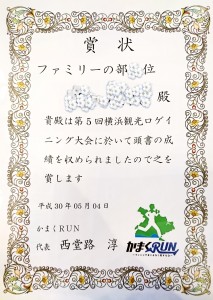 賞状
ファミリーの部 位
殿
貴殿は第5回横浜観光ロゲイ
ニング大会に於いて頭書の成
績を収められましたので之を
賞します
平成30年05月04日
かまくRUN
代表 西堂路 淳
かまくRUN